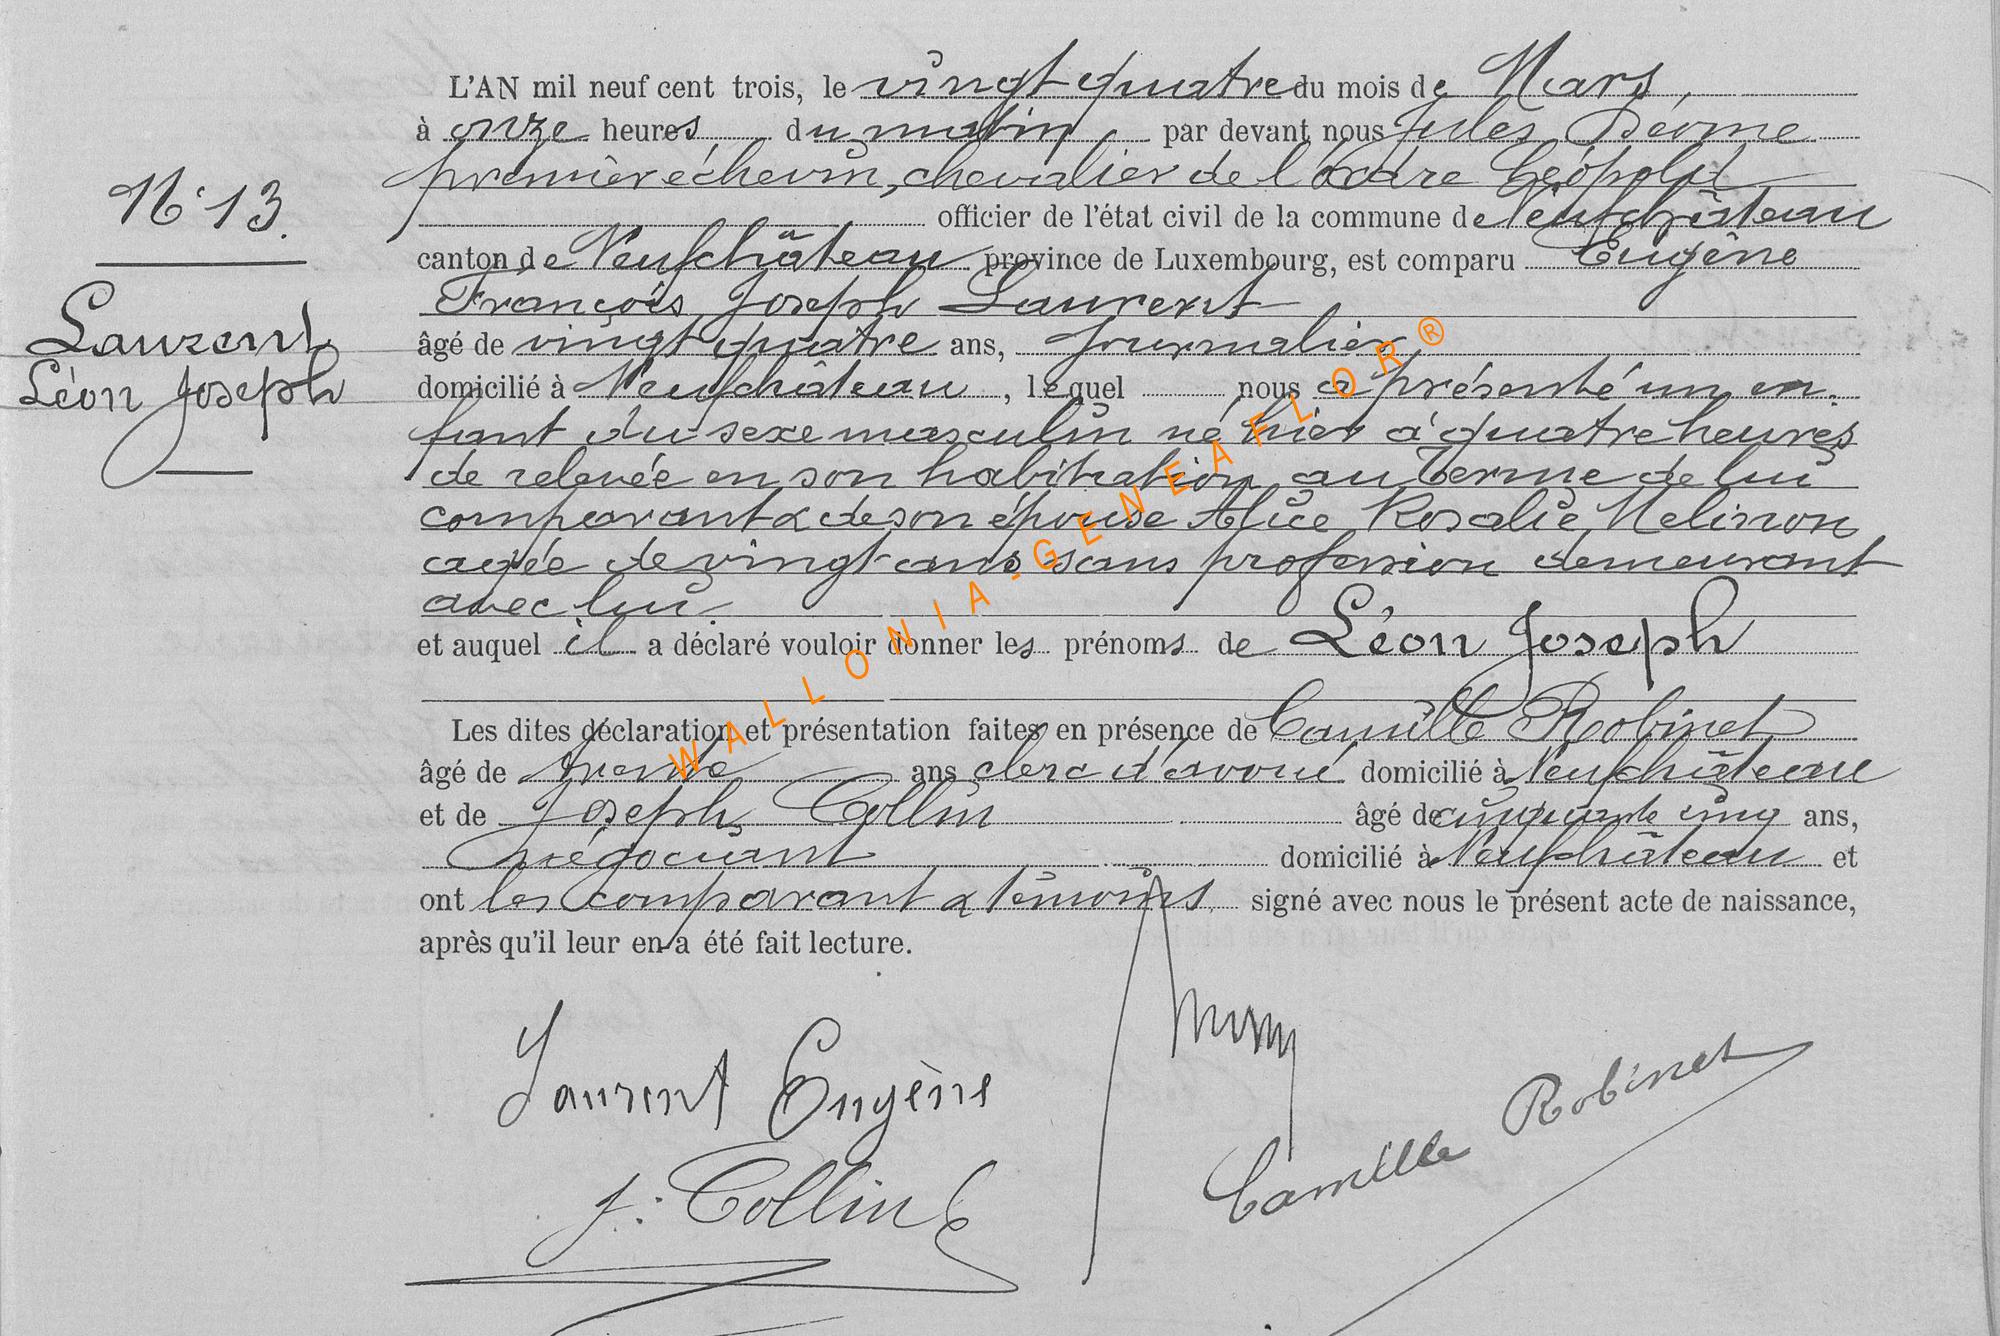 L'AN mil neuf cent trois, le vingt quatre du mois de Mars,
à onze heures du matin, par devant nous Jules
premier échevin, chevalier de l'Ordre Léopold
officier de l'état civil de la commune de Neufchâteau
canton de Neufchâteau province de Luxembourg, est comparu Eugène
François Joseph Laurent
âgé de vingt quatre ans, Journalier
domicilié à Neufchâteau, lequel nous a présenté un en-
fant du sexe masculin né hier à quatre heures
de relevée en son habitation au Terme de lui
comparant & de son épouse Alice Rosalie
agée de vingt ans sans profession demeurant
avec lui.
et auquel il a déclaré vouloir donner les prénoms de Léon Joseph
Les dites déclaration et présentation faites en présence de Camille Robinet
âgé de trente ans clerc d'avoué domicilié à Neufchâteau
et de Joseph Collin âgé de cinquante cinq ans,
négociant domicilié à Neufchâteau et
ont les comparant & témoins signé avec nous le présent acte de naissance,
après qu'il leur en a été fait lecture.
N° 13.
Laurent
Léon Joseph
Laurent Eugène
J. Collin
Camille Robinet
WALLONIA-GENEAFLOR®